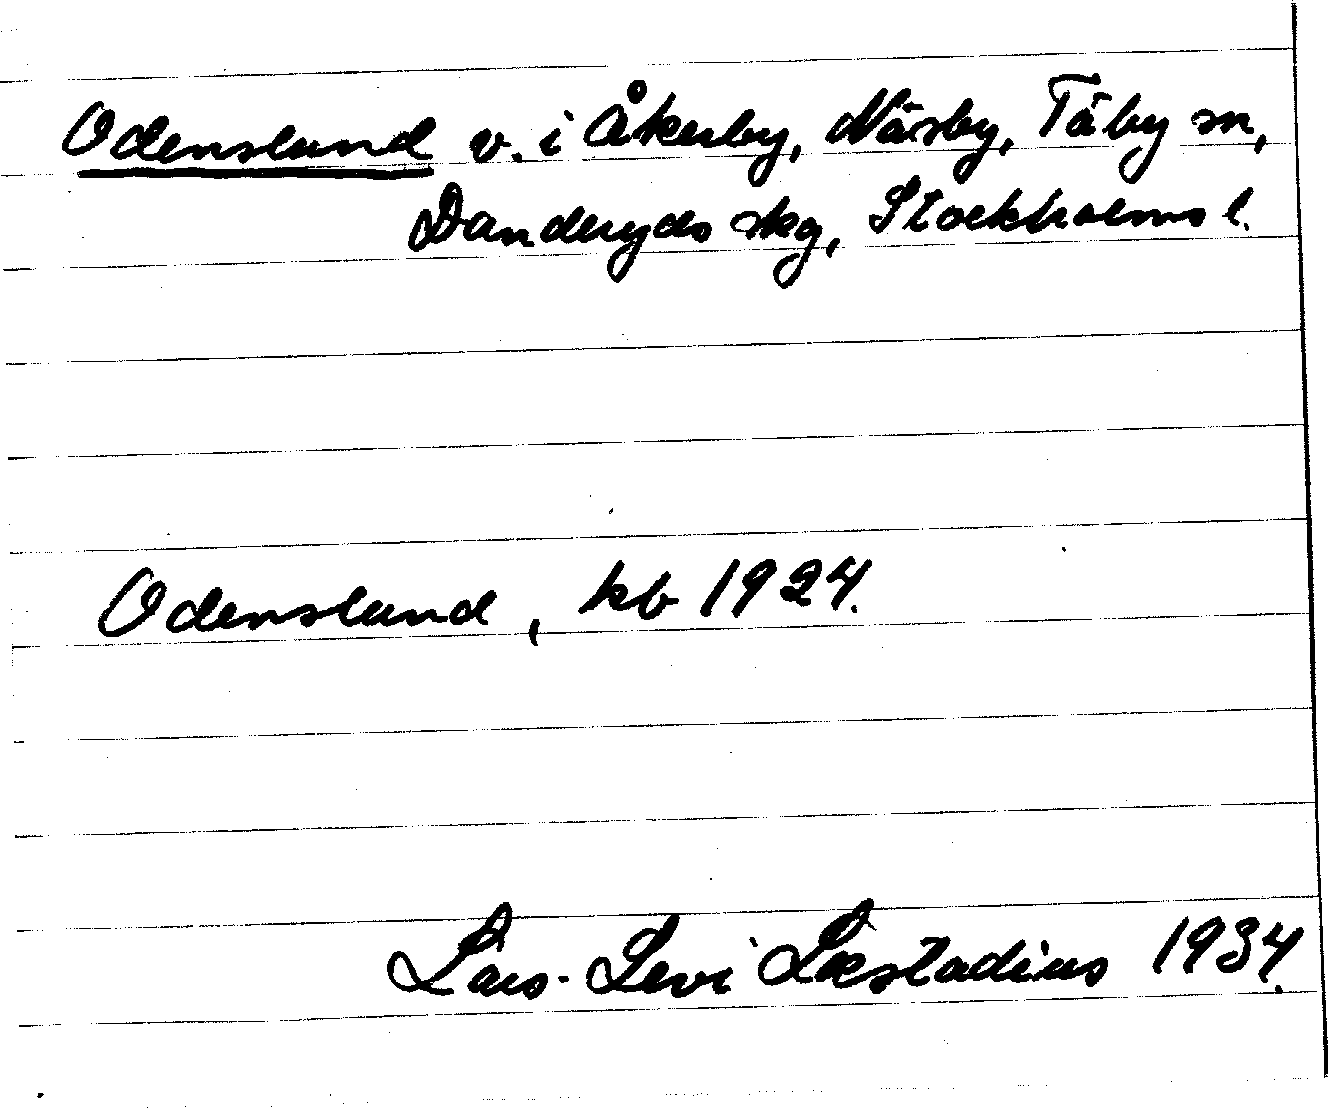 Odenslund v. i Åkerby, Näsby, Täby sn,
Danderyds skg, Stockholms l.
Odenslund, kb 1924.
Lars-Levi Læstadius 1934.